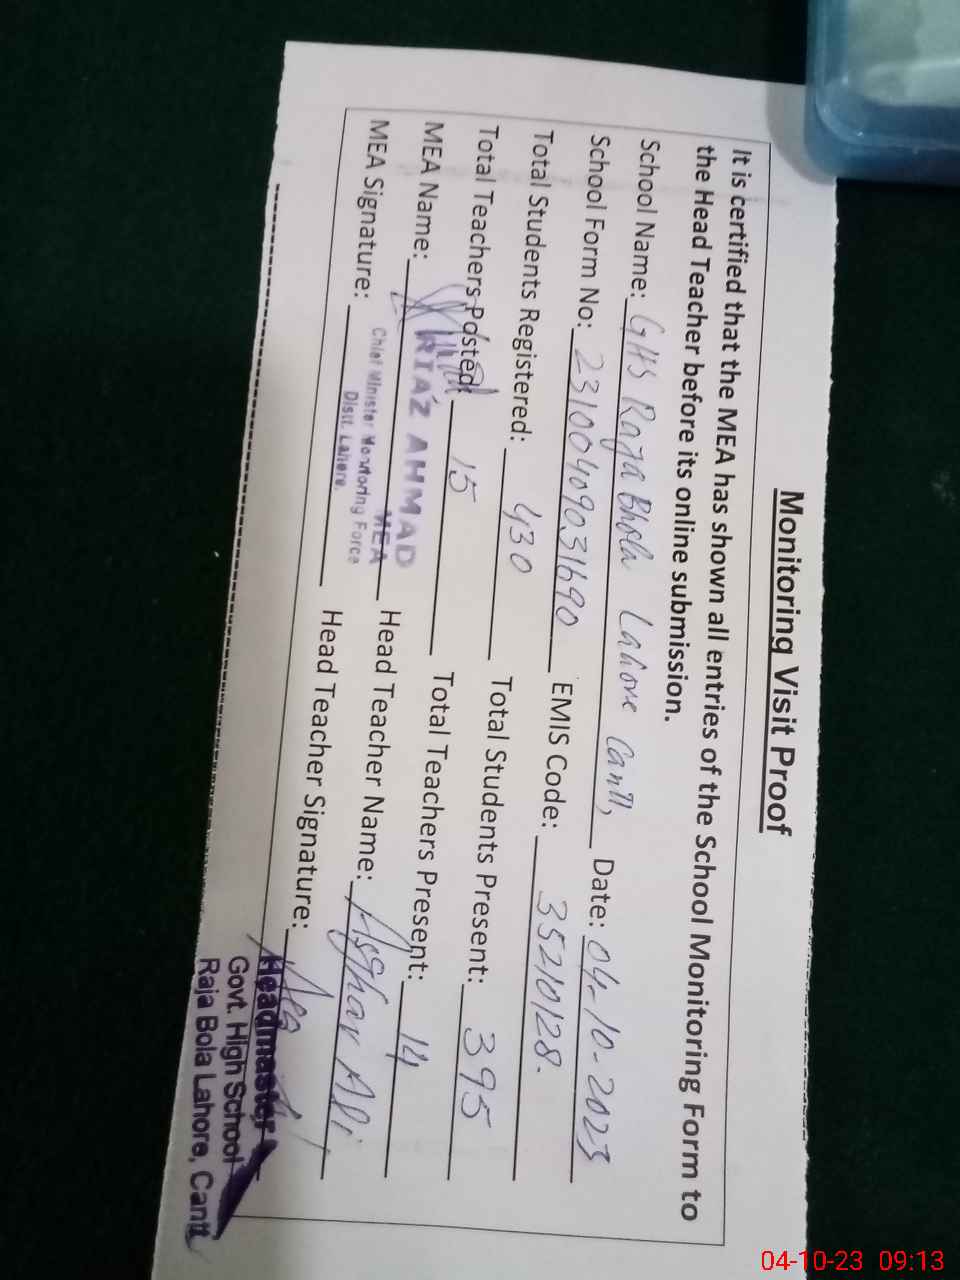 Monitoring Visit Proof
It is certified that the MEA has shown all entries of the School Monitoring Form to
the Head Teacher before its online submission.
School Name: GHS Raja Bhola Lahore Cantt, Date: 04-10-2023
School Form No: 23100409031690 EMIS Code: 35210128.
Total Students Registered: 430 Total Students Present: 395
Total Teachers Posted: 15 Total Teachers Present: 14
MEA Name: RIAZ AHMAD Head Teacher Name: Asghar Ali
MEA
Chief Minister Monitoring Force
Distt. Lahore.
MEA Signature: Head Teacher Signature:
Headmaster
Govt. High School
Raja Bola Lahore, Cantt
04-10-23 09:13